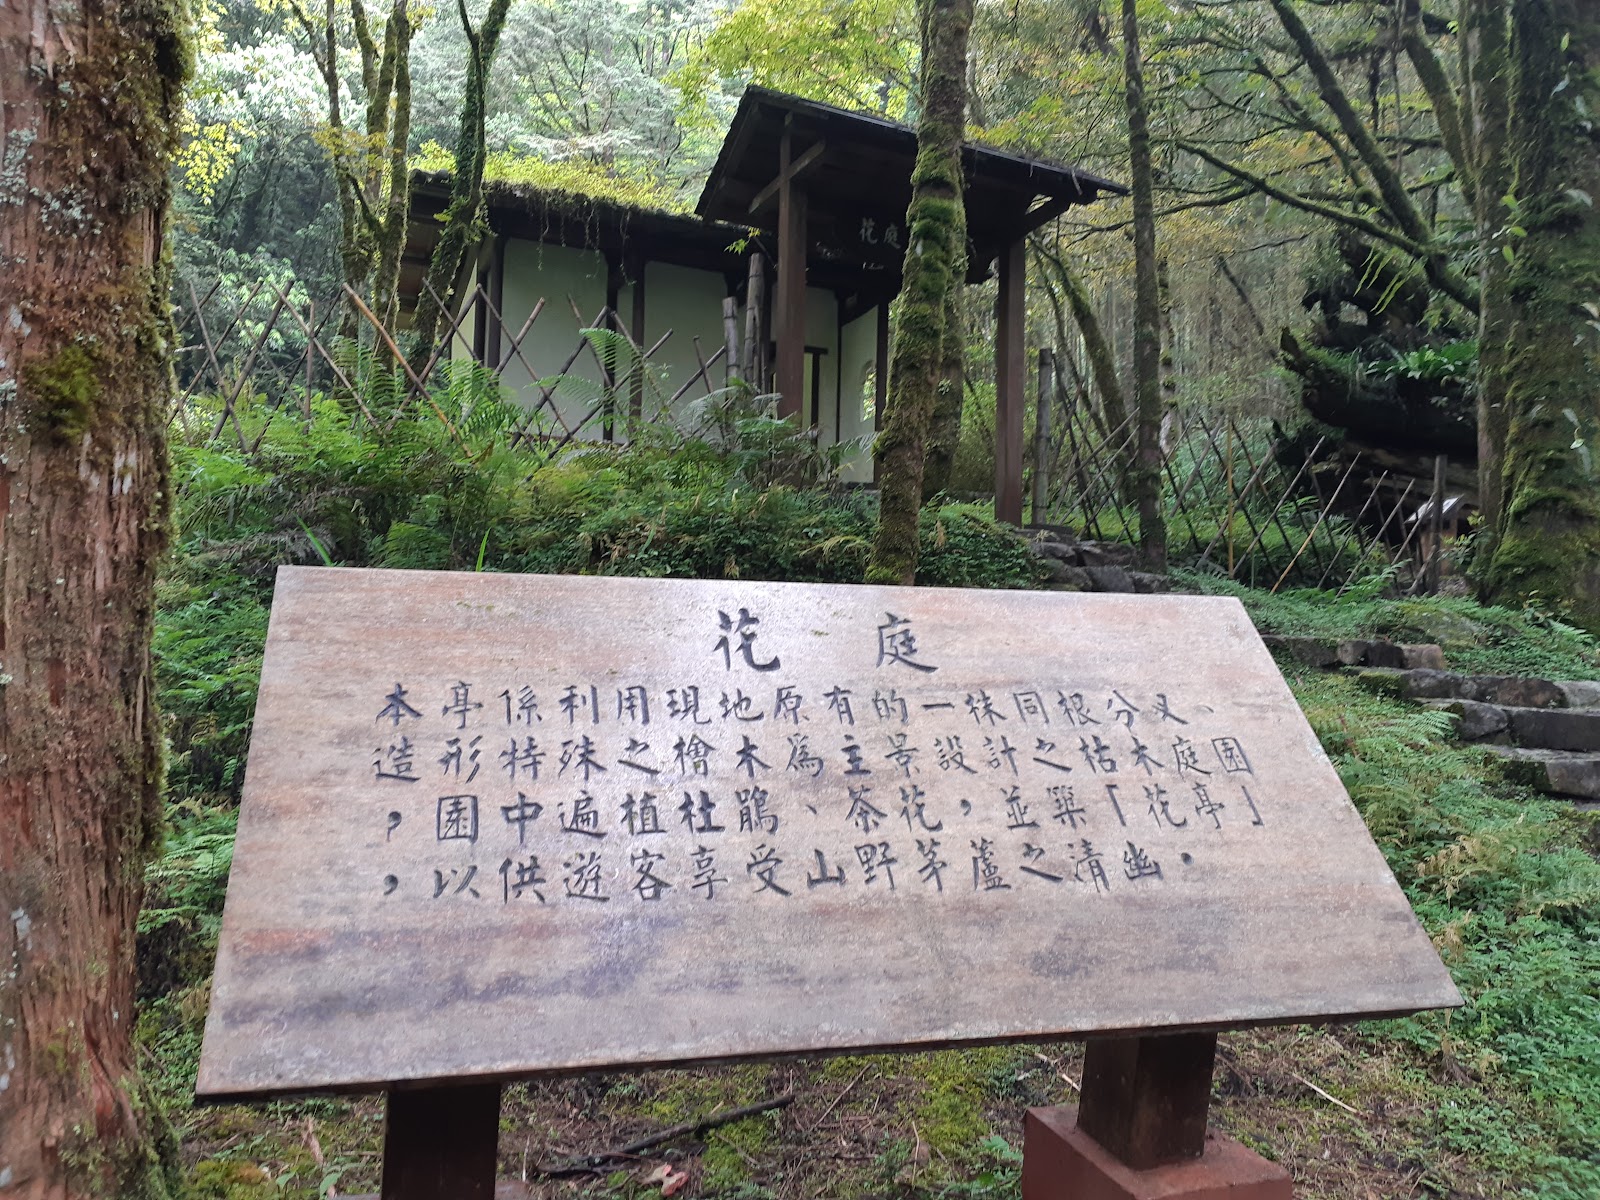 花庭
花庭
本亭係利用現地原有的一株同根分叉、
造形特殊之檜木為主景設計之枯木庭園
，園中遍植杜鵑、茶花，並築「花亭」
，以供遊客享受山野茅蘆之清幽。